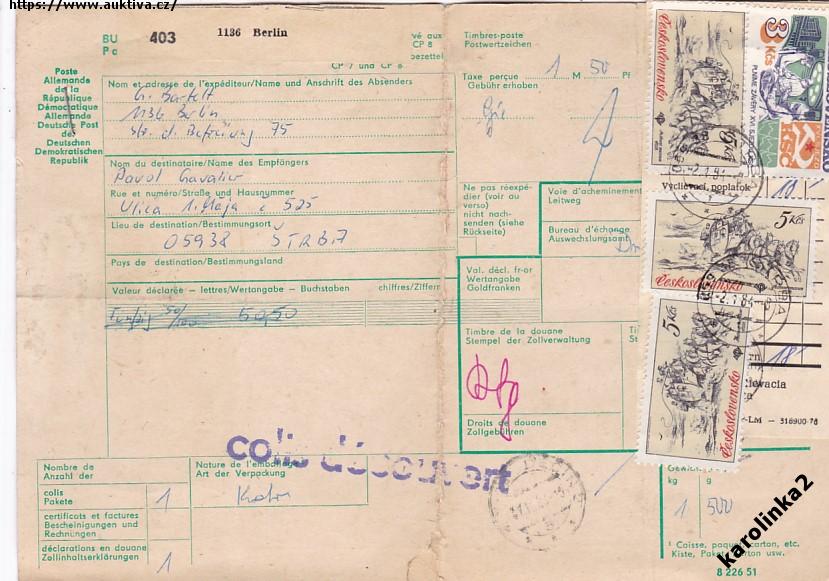 https://www.auktiva.cz/
BU 403 1136 Berlin
CP 8
CP 7 und CP 8
Poste
Allemande
de la
République
Démocratique
Allemande
Deutsche Post
der
Deutschen
Demokratischen
Republik
Nom et adresse de l'expéditeur/Name und Anschrift des Absenders
G. Bartelt
1136 Berlin
Str. d. Befreiung 75
Nom du destinataire/Name des Empfängers
Pavol Gavalier
Rue et numéro/Straße und Hausnummer
Ulica 1. Mája č 525
Lieu de destination/Bestimmungsort
05938 ŠTRBA
Pays de destination/Bestimmungsland
Valeur déclarée – lettres/Wertangabe – Buchstaben chiffres/Ziffern
Fünfzig 50/100 50,50
Timbres-poste
Postwertzeichen
Taxe perçue 1 M 50 Pf
Gebühr erhoben
Ne pas réexpé-
dier (voir au
verso)
nicht nach-
senden (siehe
Rückseite)
Voie d'acheminement
Leitweg
Bureau d'échange
Auswechslungsamt
Val. décl. fr-or
Wertangabe
Goldfranken
Timbre de la douane
Stempel der Zollverwaltung
Droits de douane
Zollgebühren
colis découvert
Nombre de
Anzahl der
Nature de l'emballage
Art der Verpackung
colis
Pakete 1
certificats et factures
Bescheinigungen und
Rechnungen
déclarations en douane
Zollinhaltserklärungen 1
Československo
5 Kčs
3 Kčs
Vyclievací, poplatok
5 Kčs
Československo
5 Kčs
Československo
-2.1.84
18
lievacia
-LM — 318900-78
kg g
1 500
¹ Coisse, paquet, carton, etc.
Kiste, Paket, Karton usw.
8 226 51
karolinka2